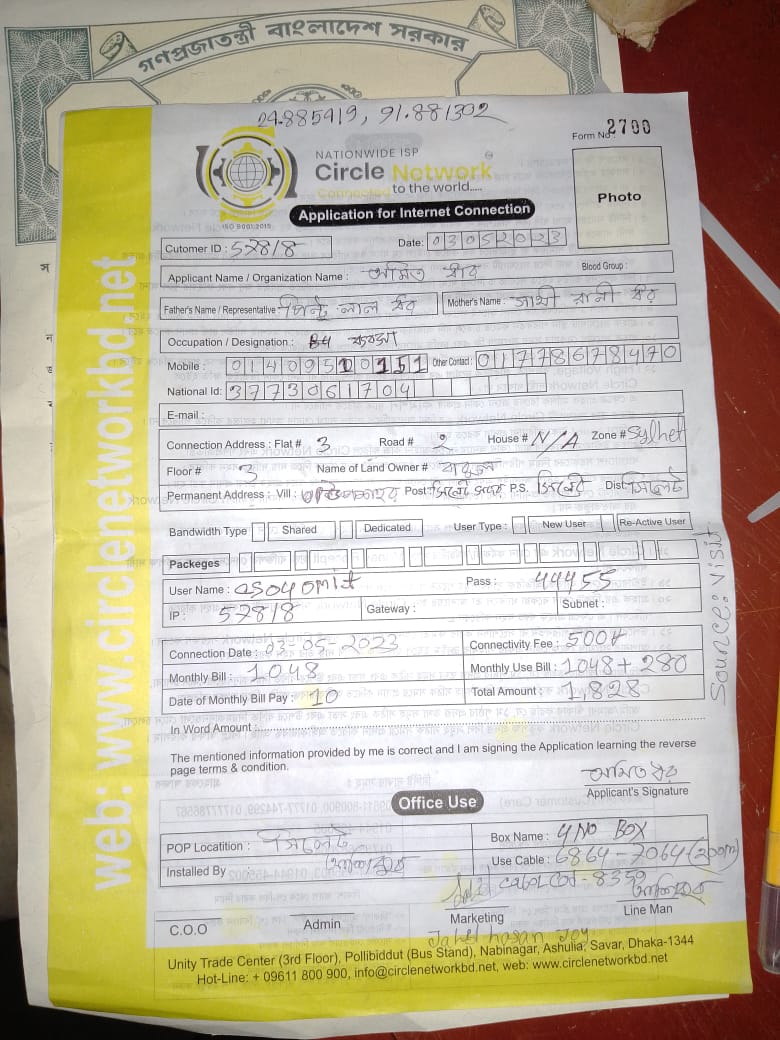 গণপ্রজাতন্ত্রী বাংলাদেশ সরকার
24.885419, 91.881302
Form No. 2700
NATIONWIDE ISP
Circle Network
Connected to the world.....
ISO 9001:2015
Application for Internet Connection
Photo
Cutomer ID : 57818 Date: 03052023
Applicant Name / Organization Name : অমিত ধর Blood Group :
Father's Name / Representative : পিন্টু লাল ধর Mother's Name : সাথী রানী ধর
Occupation / Designation : ব্যবসা
Mobile : 01409510151 Other Contact : 01778678470
National Id: 3773061704
E-mail :
Connection Address : Flat # 3 Road # 2 House # N/A Zone # Sylhet
Floor # 3 Name of Land Owner # বাবুল
Permanent Address : Vill : Post: সিলেট সদর P.S. সিলেট Dist: সিলেট
Bandwidth Type Shared Dedicated User Type : New User Re-Active User
Packeges
User Name : Pass : 44455
IP : 57818 Gateway : Subnet :
Connection Date : 03-05-2023 Connectivity Fee : 500৳
Monthly Bill : 1048 Monthly Use Bill : 1048 + 280
Date of Monthly Bill Pay : 10 Total Amount : 1,828
In Word Amount :
The mentioned information provided by me is correct and I am signing the Application learning the reverse
page terms & condition.
অমিত ধর
Applicant's Signature
Office Use
POP Locatition : সিলেট Box Name : 4 NO BOX
Installed By Use Cable : 6864 - 7064 (200m)
8359
C.O.O Admin Marketing Line Man
Jahid hasan Joy
Unity Trade Center (3rd Floor), Pollibiddut (Bus Stand), Nabinagar, Ashulia, Savar, Dhaka-1344
Hot-Line: + 09611 800 900, info@circlenetworkbd.net, web: www.circlenetworkbd.net
web: www.circlenetworkbd.net
Source: Visit